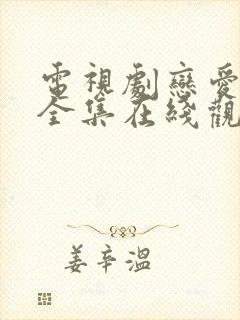 電視劇戀愛
全集在綫觀
姜辛溫